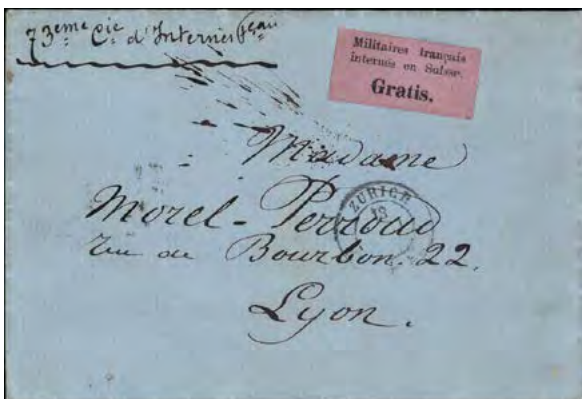 73eme Cie d'Internés fçais
Militaires français
internés en Suisse.
Gratis.
Madame
Morel-Perroud
rue de Bourbon. 22.
Lyon.
ZURICH
13